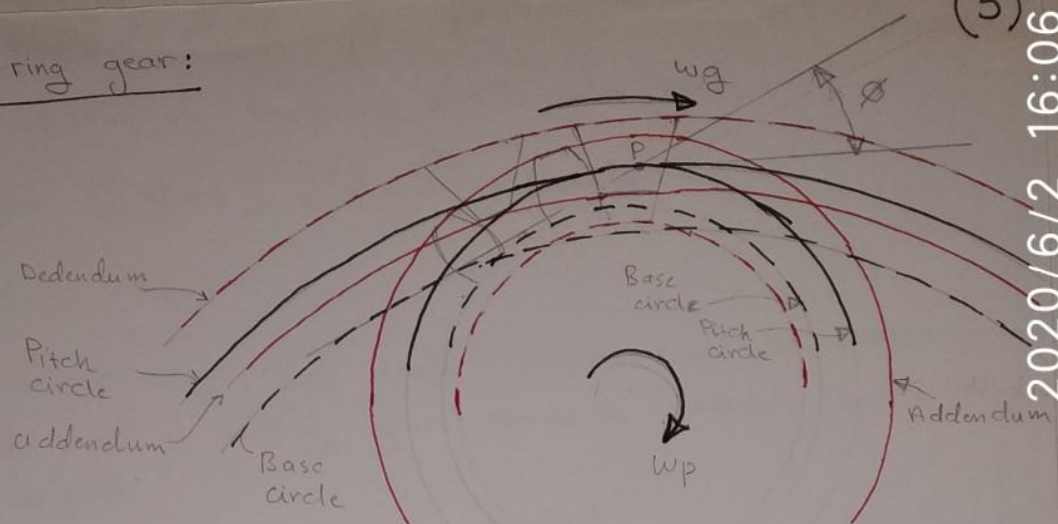 (5)
ring gear:
wg
ø
P
Dedendum
Pitch
circle
addendum
Base
circle
Base
circle
Pitch
circle
Addendum
wp
2020/6/2 16:06